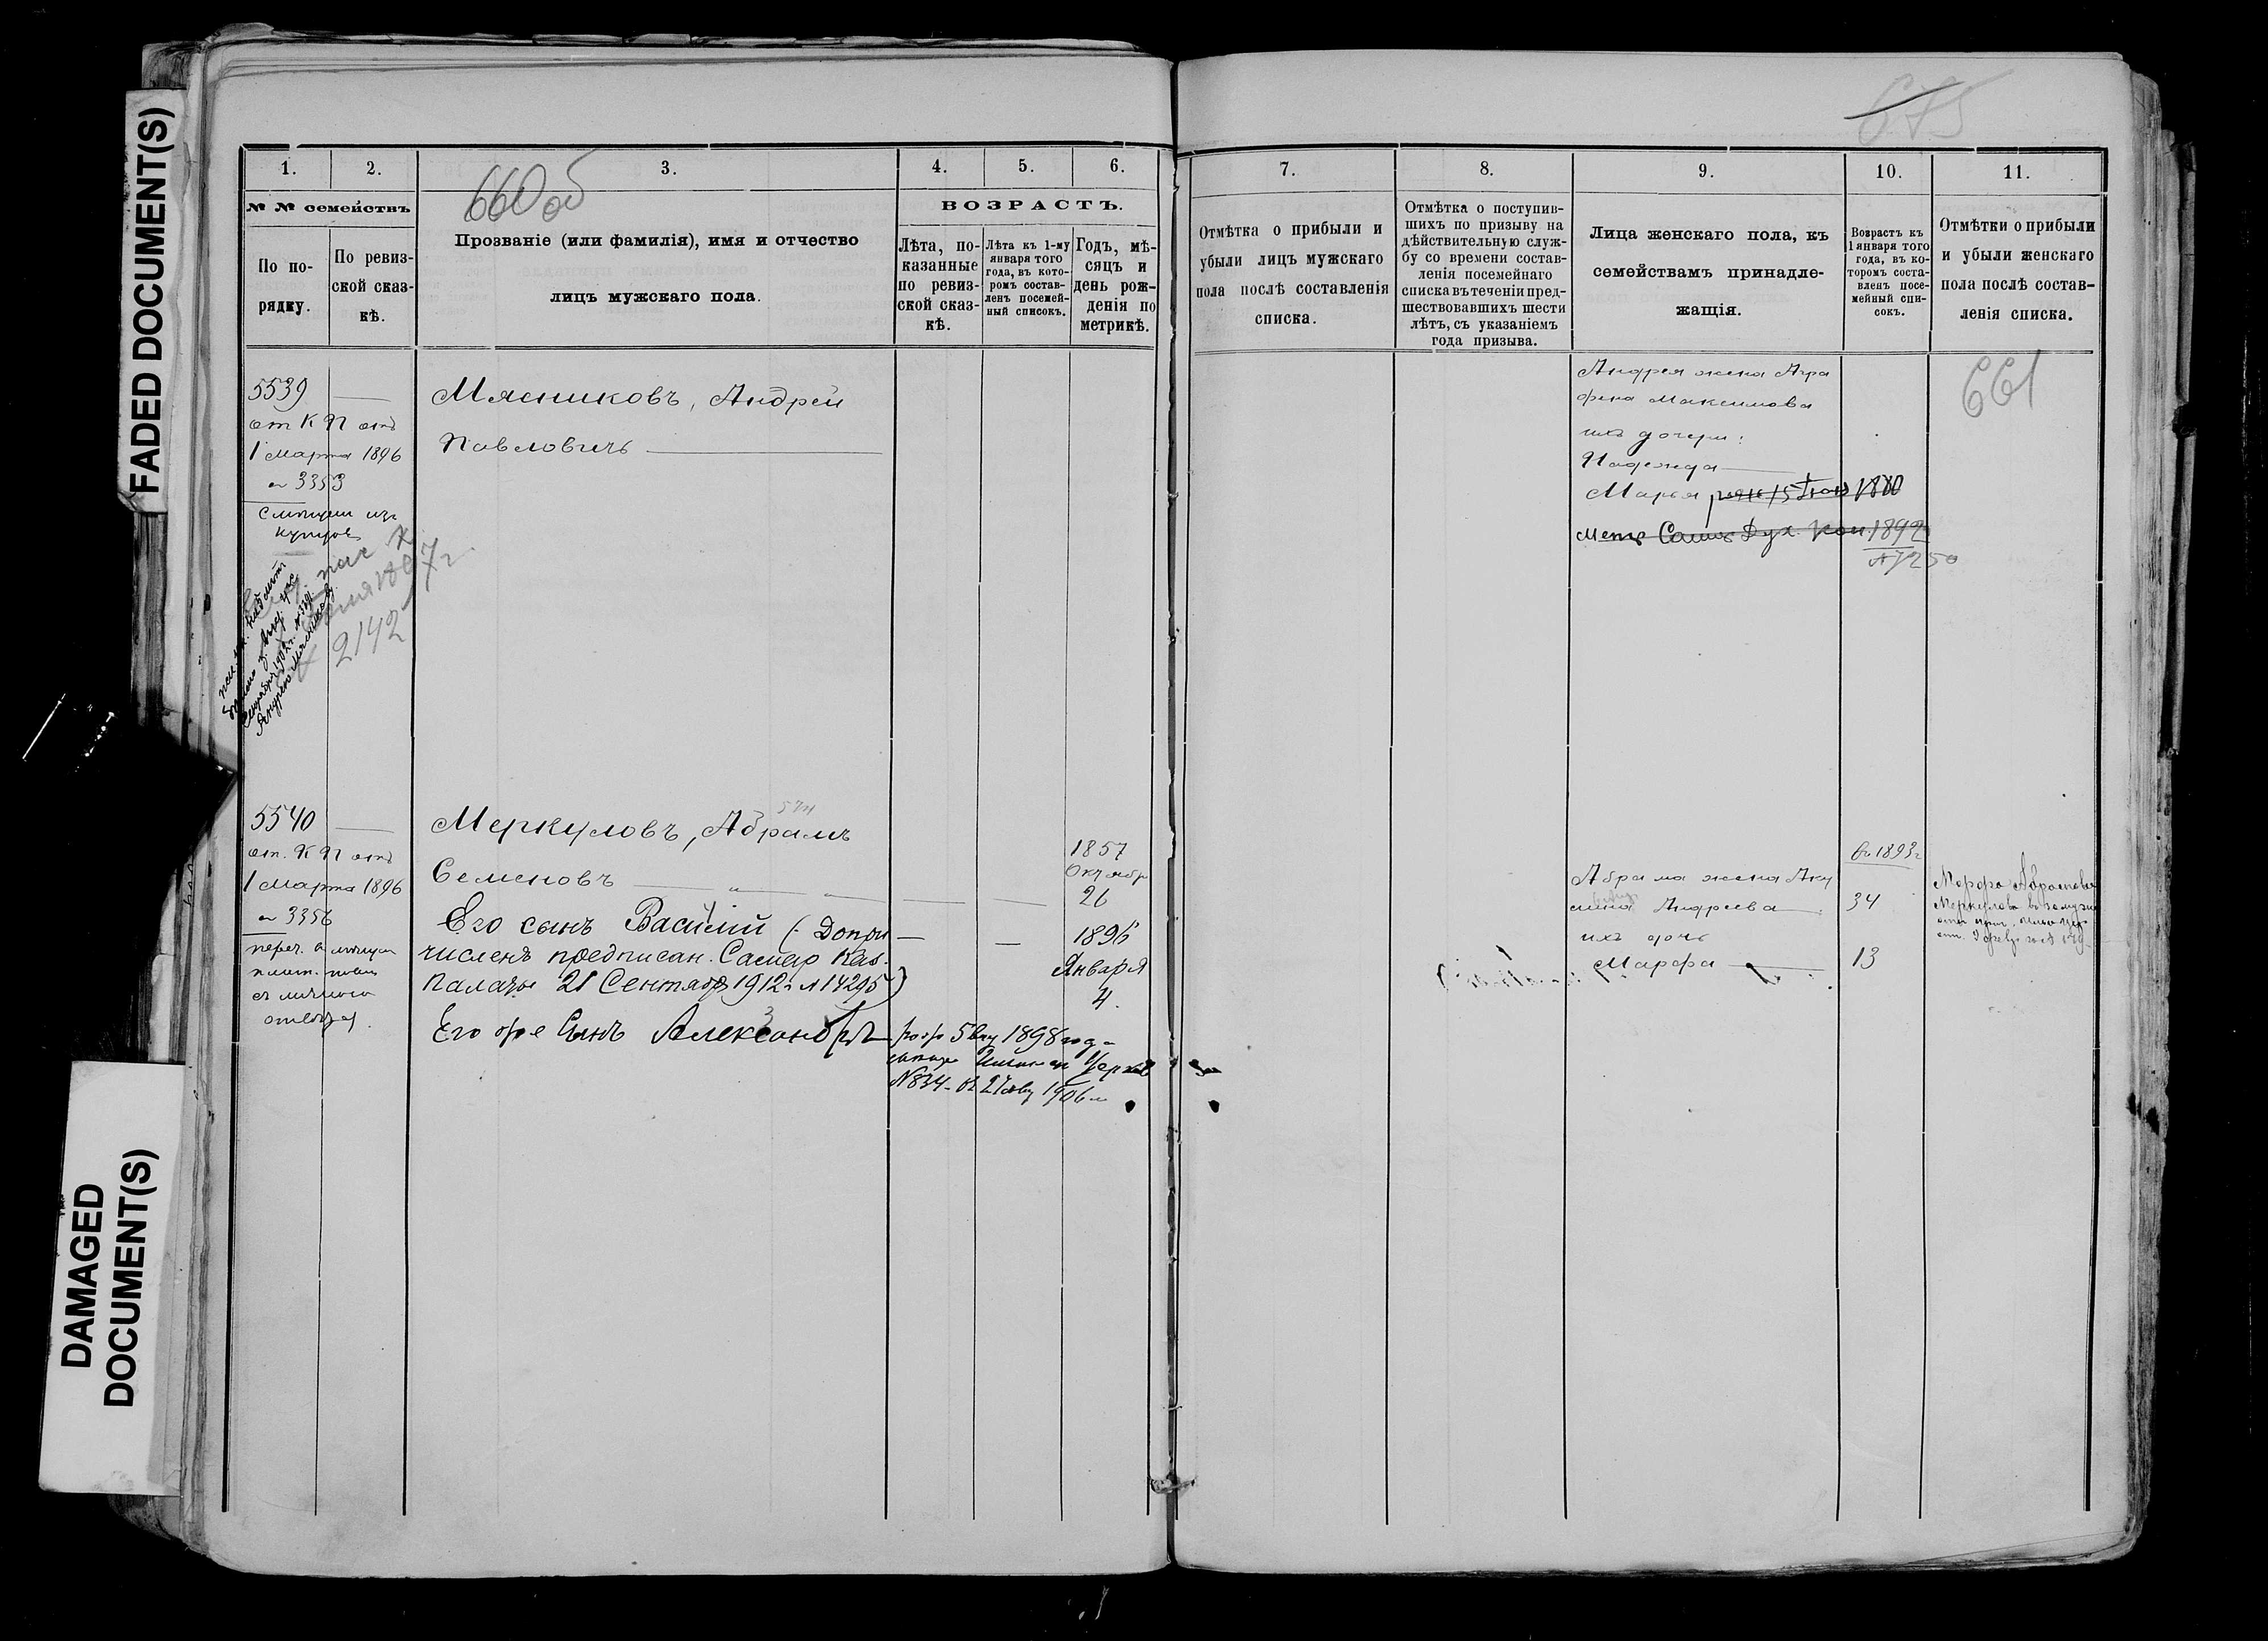 FADED DOCUMENT(S)
DAMAGED
DOCUMENT(S)
675
1.
2.
3.
4.
5.
6.
660 об
№ № семействъ
По по-
рядку.
По ревиз-
ской сказ-
кѣ.
Прозваніе (или фамилія), имя и отчество
лицъ мужскаго пола.
ВОЗРАСТЪ.
Лѣта, по-
казанные
по ревиз-
ской сказ-
кѣ.
Лѣта къ 1-му
января того
года, въ кото-
ромъ состав-
ленъ посемей-
ный списокъ.
Годъ, мѣ-
сяцъ и
день рож-
денія по
метрикѣ.
5539
от К П отъ
1 Марта 1896
№ 3353
2142
Мясниковъ, Андрей
Павловичъ
5540
от. К П отъ
1 Марта 1896
№ 3356
Меркуловъ, Абрамъ
Семеновъ
1857
Октябр
26
Его сынъ Василій (Допри
численъ предписан. Самар Каз.
Палаты 21 Сентября 1912 г № 14295)
1896
Января
4.
Его же Сынъ Александръ
1898 год
№ 834
1906
7.
8.
9.
10.
11.
Отмѣтка о прибыли и
убыли лицъ мужскаго
пола послѣ составленія
списка.
Отмѣтка о поступив-
шихъ по призыву на
дѣйствительную служ-
бу со времени состав-
ленія посемейнаго
списка въ теченіи пред-
шествовавшихъ шести
лѣтъ, съ указаніемъ
года призыва.
Лица женскаго пола, къ
семействамъ принадле-
жащія.
Возрастъ къ
1 января того
года, въ ко-
торомъ соста-
вленъ посе-
мейный спи-
сокъ.
Отмѣтки о прибыли
и убыли женскаго
пола послѣ состав-
ленія списка.
661
Андрея жена Агра
фена Максимова
ихъ дочери:
Надежда
Марья
1892
№ 7250
въ 1893 г
Абрама жена Аку
лина Андреева
34
ихъ дочь
Марфа
13
Марфа Абрамова
Меркулова